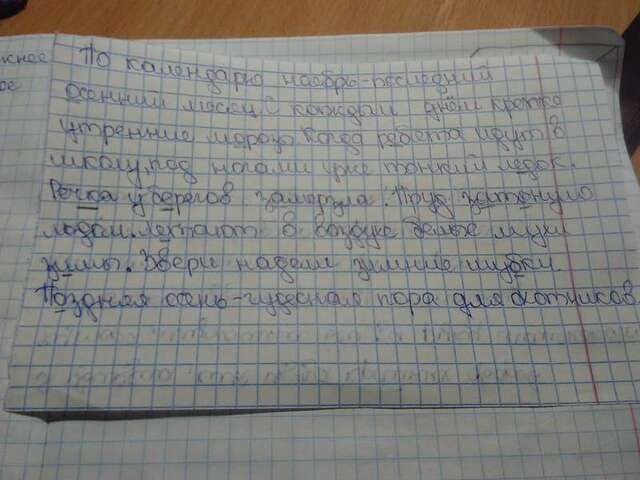 жное
ое
По календарю ноябрь-последний
осенний месяц С каждым днём крепче
утренние морозы Когда ребята идут в
школу, под ногами уже тонкий ледок.
Речка у берегов замёрзла. Пруд затянуло
льдом. Летают в воздухе белые мухи
зимы. Звери надели зимние шубки.
Поздная осень-чудесная пора для охотников